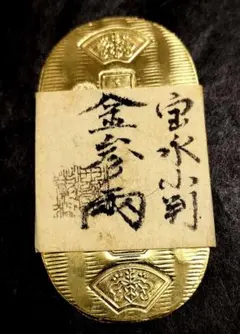 宝永小判
金参両